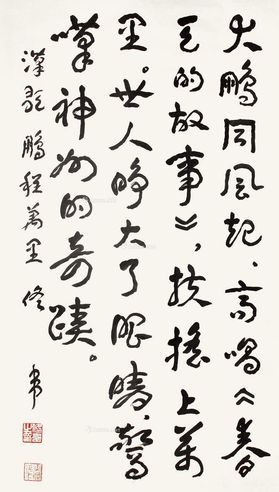 大鹏同风起、高唱《春
天的故事》，扶摇上万
里。世人睁大了眼睛，惊
嘆神州的奇蹟。
漢歌 鹏程萬里 修